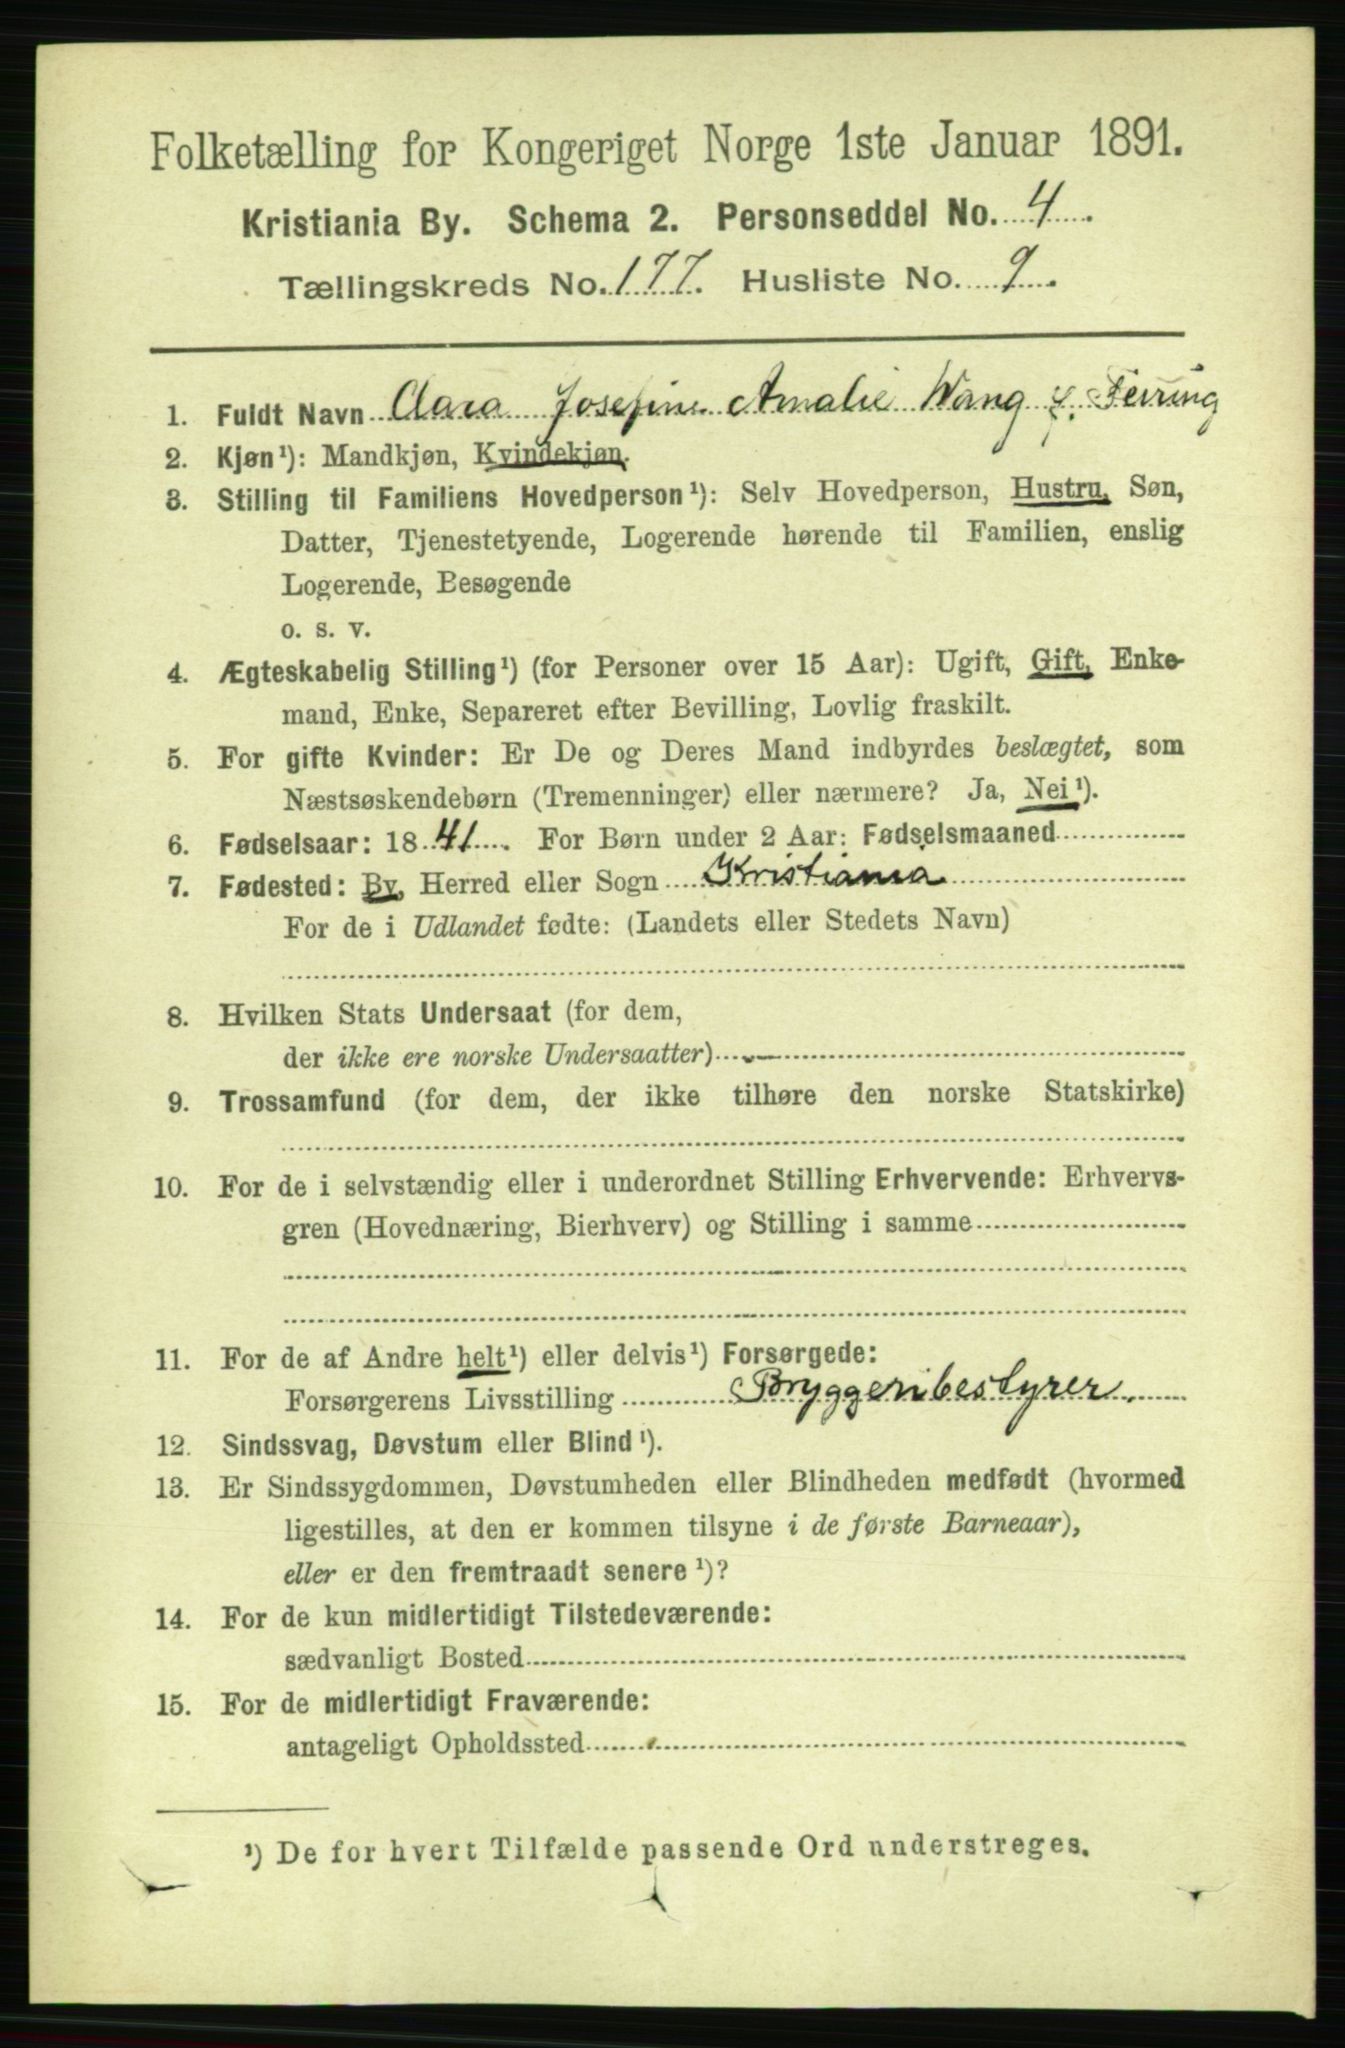 Folketælling for Kongeriget Norge 1ste Januar 1891.
Kristiania By. Schema 2. Personseddel No. 4.
Tællingskreds No. 177. Husliste No. 9.
1. Fuldt Navn Clara Josefine Amalie Wang f. Ferring
2. Kjøn¹): Mandkjøn, Kvindekjøn.
3. Stilling til Familiens Hovedperson¹): Selv Hovedperson, Hustru, Søn,
Datter, Tjenestetyende, Logerende hørende til Familien, enslig
Logerende, Besøgende
o. s. v.
4. Ægteskabelig Stilling¹) (for Personer over 15 Aar): Ugift, Gift, Enke-
mand, Enke, Separeret efter Bevilling, Lovlig fraskilt.
5. For gifte Kvinder: Er De og Deres Mand indbyrdes beslægtet, som
Næstsøskendebørn (Tremenninger) eller nærmere? Ja, Nei¹).
6. Fødselsaar: 1841. For Børn under 2 Aar: Fødselsmaaned
7. Fødested: By, Herred eller Sogn Kristiania
For de i Udlandet fødte: (Landets eller Stedets Navn)
8. Hvilken Stats Undersaat (for dem,
der ikke ere norske Undersaatter) -
9. Trossamfund (for dem, der ikke tilhøre den norske Statskirke)
10. For de i selvstændig eller i underordnet Stilling Erhvervende: Erhvervs-
gren (Hovednæring, Bierhverv) og Stilling i samme
11. For de af Andre helt¹) eller delvis¹) Forsørgede:
Forsørgerens Livsstilling Bryggeribestyrer.
12. Sindssvag, Døvstum eller Blind¹).
13. Er Sindssygdommen, Døvstumheden eller Blindheden medfødt (hvormed
ligestilles, at den er kommen tilsyne i de første Barneaar),
eller er den fremtraadt senere¹)?
14. For de kun midlertidigt Tilstedeværende:
sædvanligt Bosted
15. For de midlertidigt Fraværende:
antageligt Opholdssted
¹) De for hvert Tilfælde passende Ord understreges.